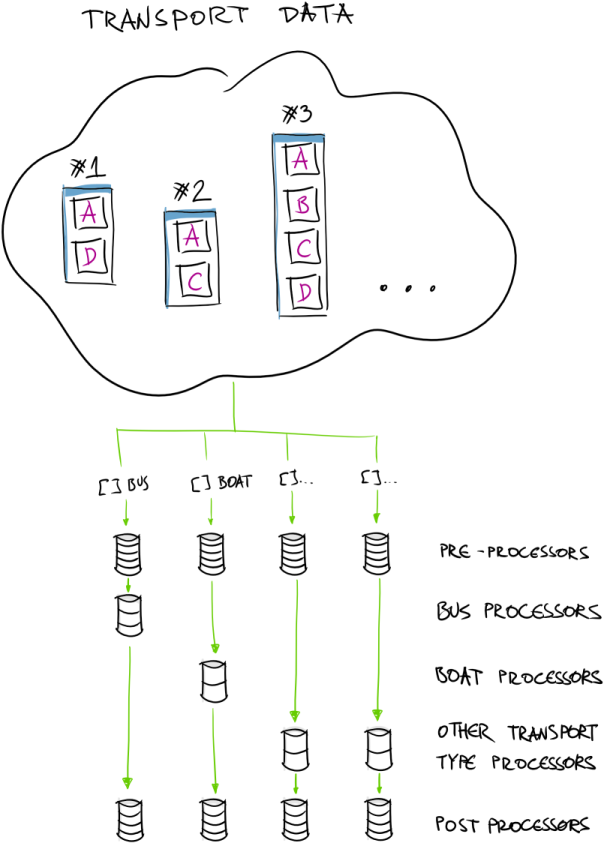 TRANSPORT DATA
#3
A
B
C
D
#1
A
D
#2
A
C
...
[] BUS
[] BOAT
[]...
[]...
PRE-PROCESSORS
BUS PROCESSORS
BOAT PROCESSORS
OTHER TRANSPORT
TYPE PROCESSORS
POST PROCESSORS